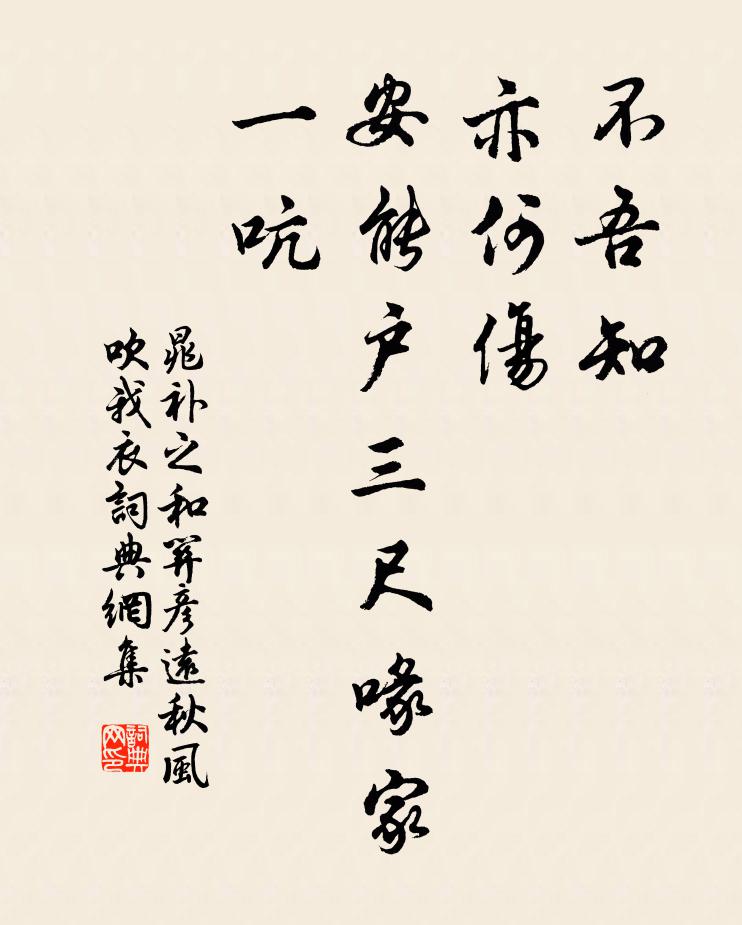 不吾知
亦何傷
安能户三尺喙家
一吭
晁补之和關彦遠秋風
吹我衣詞典網集
詞典网印